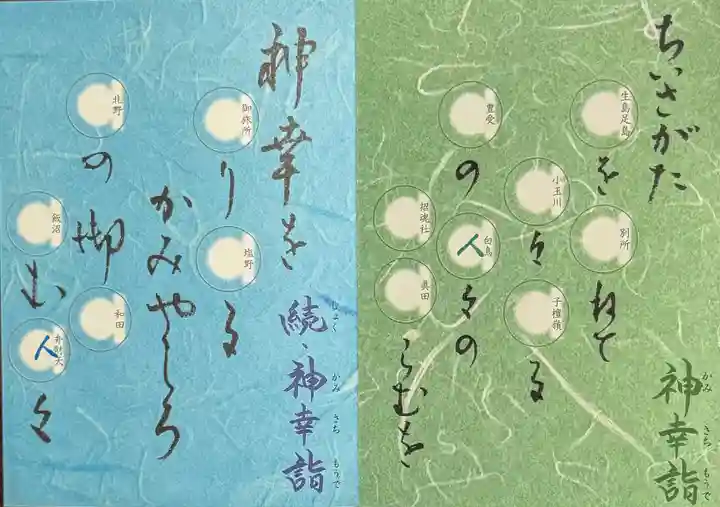 ちいさがた
生島足島
を
別所
ねて
小玉川
々
子檀嶺
る
豊受
の
白鳥
人
々の
招魂社
真田
らむを
神幸詣
かみさちもうで
神幸を
御旅所
り
塩野
る
かみやしろ
北野
の御
和田
飯沼
む
弁財天
人
々
続・神幸詣
ぞくかみさちもうで